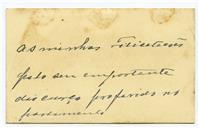 As minhas felicitações
pelo seu importante
discurso proferido no
parlamento